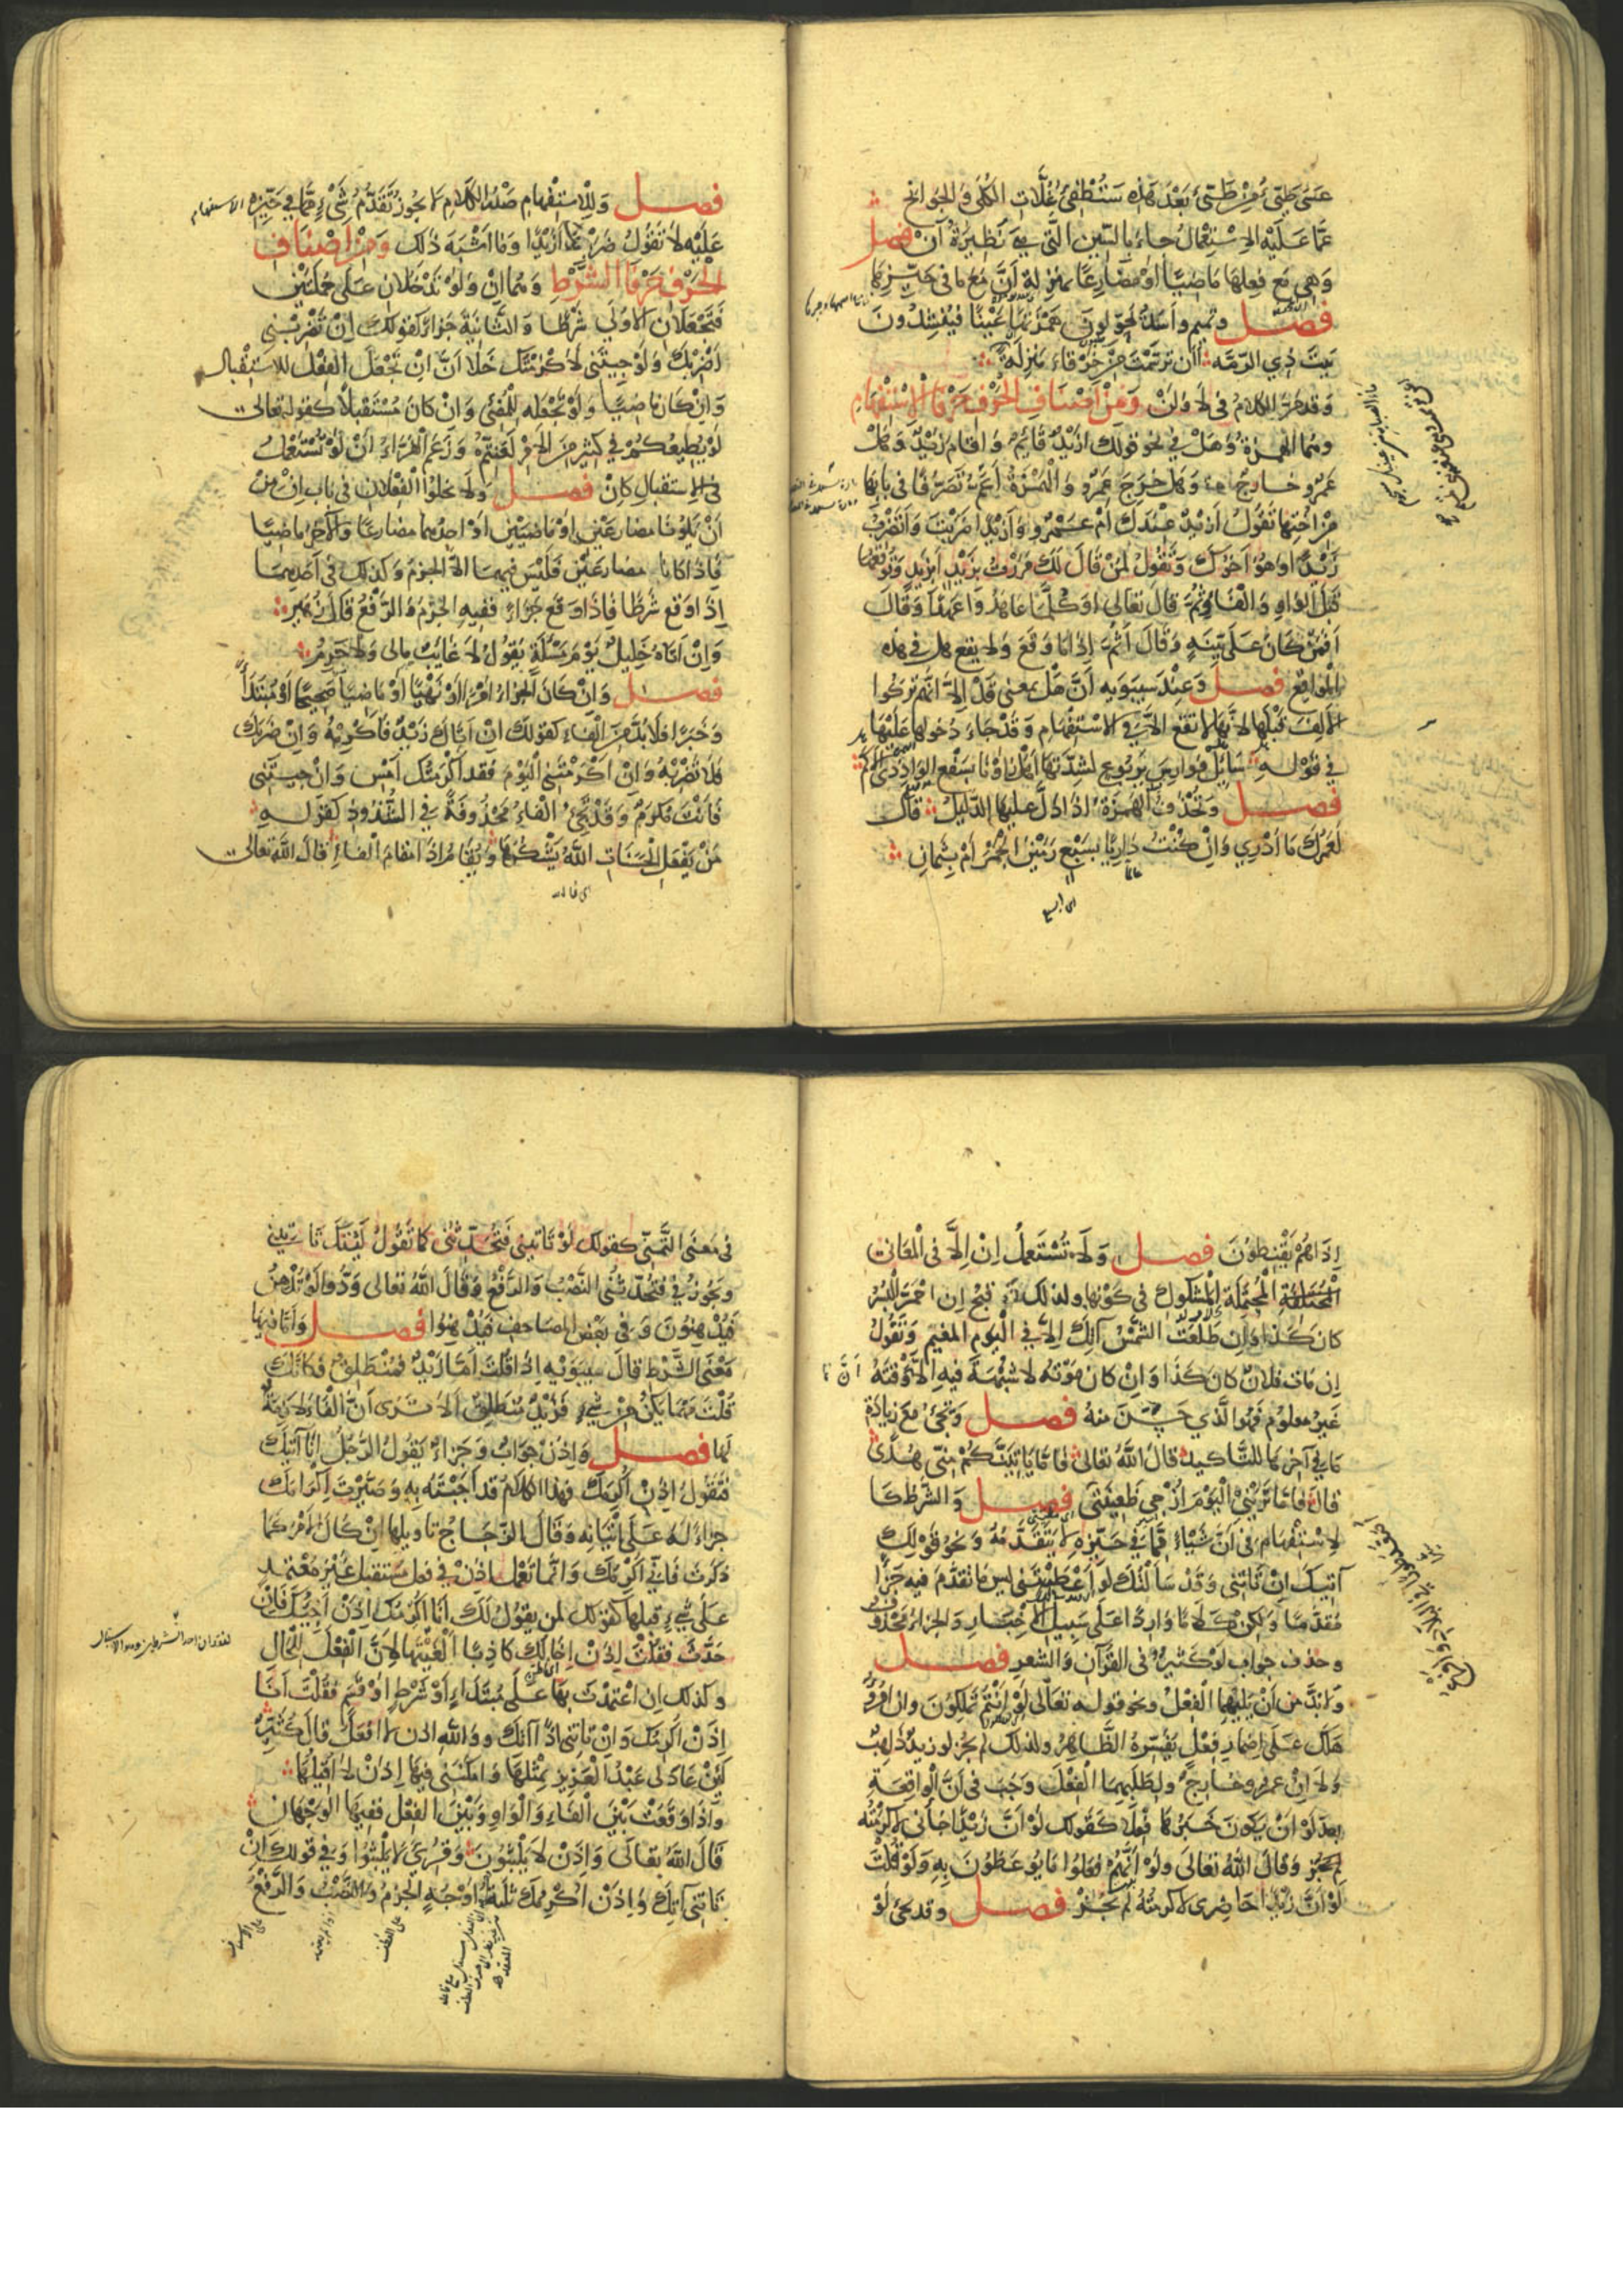 عَسَى طَيِّئٌ مِنْ طَيِّئٍ بَعْدَ هَذِهِ سَتُطْفِئُ غُلَّاتِ الْكُلَى وَالْجَوَانِحِ
عَمَّا عَلَيْهِ الِاسْتِعْمَالُ جَاءَ بِالسِّينِ الَّتِي هِيَ نَظِيرَةُ أَنْ فصل
وَهِيَ مَعَ فِعْلِهَا مَاضِيًا أَوْ مُضَارِعًا بِمَنْزِلَةِ أَنَّ مَعَ مَا فِي حَيِّزِهَا
فصل وتميم وأسد يحولون همزتها عَيْنًا فَيُنْشِدُونَ
بَيْتَ ذِي الرُّمَّة أأن ترسمت من خَرْقَاءَ مَنْزِلَةً
وَقَدْ مَرَّ الكلامُ فِي لَا وَلَنْ وَمِنْ أَصْنَافِ الْحَرْفِ حَرْفَا الِاسْتِفْهَامِ
وهما الهمزة وَهَلْ فِي نحو قولك ازَيْدٌ قَائِمٌ وَ اقام زَيْدٌ وَهَلْ
عَمْرٌو خارجٌ وَهَل خَرَجَ عَمْرٌو وَالْهَمْزَةُ أَعَمُّ تَصَرُّفًا فِي بَابِهَا
مِنْ اخْتِهَا تَقُولُ أَزَيْدٌ عِنْدَكَ أَمْ عَمْرٌو وَأَزَيْدًا ضَرَبْتَ وَأَتَضْرِبُ
زَيْدًا وَهُوَ أَخُوكَ وَتَقُولُ لِمَنْ قَالَ لَكَ مَرَرْتُ بِزَيْدٍ أَبِزَيْدٍ وَتُوقِعُهَا
قَبْلَ الوَاوِ وَالْفَاءِ وَثُمَّ قَالَ تَعَالَى اوَكُلَّمَا عَاهَدُوا عَهْدًا وَقَالَ
أَفَمَنْ كَانَ عَلَى بَيِّنَةٍ وَقَالَ أَثُمَّ إِذَا مَا وَقَعَ وَلَا يقع هل في هذه
الْمَوَاقِعِ فصل وَعِنْدَ سِيبَوَيْهِ أَنَّ هَلْ بمعنى قَدْ إِلَّا انَّهُمْ تَرَكُوا
الألِفَ قَبْلَهَا لِأَنَّهَا لَا تَقَعُ إِلَّا فِي الِاسْتِفْهَامِ وَقَدْ جَاءَ دُخولها عَلَيْهَا
في قَوْلِهِ سَائِلْ فَوَارِسَ يَرْبُوعٍ لِشَدَّتِهَا أَهَلْ رَأَوْنَا بِسَفْحِ الوَادِ ذِي الأَكَمِ
فصل وَتُحْذَفُ الْهَمْزَةُ اذَا دَلَّ عليها الدَّلِيلُ قَالَ
لَعَمْرُكَ مَا أَدْرِي وَإِنْ كُنْتُ دَارِيًا بِسَبْعٍ رَمَيْنَ الْجَمْرَ أَمْ بِثَمَانِ
فصل وَلِلِاسْتِفْهَامِ صَدْرُ الكَلَامِ لَا يجوز تَقَدُّمُ شَيْءٍ مِمَّا فِي حَيِّزِهِ
عَلَيْهِ لَا تَقُولُ ضَرَبْتَ أَزَيْدًا وَمَا أَشْبَهَ ذَلِكَ وَمِنْ أَصْنَافِ
الْحَرْفِ حَرْفَا الشَّرْطِ وَهُمَا إِنْ وَلَوْ تَدْخُلَانِ عَلَى جُمْلَتَيْنِ
فَتَجْعَلَانِ الأُولَى شَرْطًا وَالثَّانِيَةَ جَزَاءً كقولك إِنْ تَضْرِبْنِي
أَضْرِبْكَ وَلَوْ جِئْتَنِي لَأَكْرَمْتُكَ خَلَا أَنَّ إِنْ تَجْعَلُ الْفِعْلَ لِلِاسْتِقْبَالِ
وَإِنْ كَانَ مَاضِيًا وَلَوْ تَجْعَلُهُ لِلْمُضِيِّ وَإِنْ كَانَ مُسْتَقْبَلًا كَقَوْلِهِ تَعَالَى
لَوْ يُطِيعُكُمْ فِي كَثِيرٍ مِنَ الْأَمْرِ لَعَنِتُّمْ وَزَعَمَ الْفَرَّاءُ أَنَّ لَوْ تُسْتَعْمَلُ
في الاستقبالِ كإنْ فصل وَلَا يَخْلُو الْفِعْلَانِ فِي بَابِ إِنْ مِنْ
أَنْ يَكُونَا مضارعَيْنِ أَوْ مَاضِيَيْنِ أَوْ أحدهما مضارعًا وَالآخَرُ مَاضِيًا
فَإِذَا كَانَا مضارِعَيْنِ فَلَيْسَ فيهما إِلَّا الجزمُ وَكذلك فِي أَحَدِهِمَا
إِذَا وَقَعَ شَرْطًا فَإِذَا وَقَعَ جَزَاءً فَفِيهِ الْجَزْمُ وَالرَّفْعُ قَالَ زُهَيْرٌ
وَإِنْ أَتَاهُ خَلِيلٌ يَوْمَ مَسْأَلَةٍ يَقُولُ لَا غَائِبٌ مَالِي وَلَا حَرِمُ
فصل وَإِنْ كَانَ الْجَزَاءُ أَمْرًا أَوْ نَهْيًا أَوْ مَاضِيًا صَحِيحًا أَوْ مُبْتَدَأً
وَخَبَرًا فَلَا بُدَّ مِنَ الْفَاءِ كقولك إِنْ أَتَاكَ زَيْدٌ فَأَكْرِمْهُ وَإِنْ ضَرَبَكَ
فَلَا تَضْرِبْهُ وَإِنْ أَكْرَمْتَنِي الْيَوْمَ فَقَدْ أَكْرَمْتُكَ أَمْسِ وَإِنْ جِئْتَنِي
فَأَنْتَ مُكْرَمٌ وَقَدْ تَجِيءُ الْفَاءُ مَحْذُوفَةً فِي الشُّذُوذِ كَقَوْلِهِ
مَنْ يَفْعَلِ الْحَسَنَاتِ اللَّهُ يَشْكُرُهَا وَيُقَامُ إِذَا مَقَامَ الْفَاءِ قَالَ اللَّهُ تعالى
إِذَا هُمْ يَقْنَطُونَ فصل وَلَا تُسْتَعْمَلُ إِنْ إِلَّا فِي الْمَعَانِي
الْمُحْتَمَلَةِ الْمَشْكُوكِ فِي كَوْنِهَا ولذلك قَبُحَ إِنِ احْمَرَّ الْبُسْرُ
كَانَ كَذَا وَإِنْ طَلَعَتِ الشَّمْسُ آتِكَ إِلَّا فِي الْيَوْمِ الْمُغِيمِ وَتَقُولُ
إِنْ مَاتَ فُلَانٌ كَانَ كَذَا وَإِنْ كَانَ مَوْتُهُ لَا شُبْهَةَ فِيهِ إِلَّا أَنَّ وَقْتَهُ
غَيْرُ معلوم فَهُوَ الَّذِي حَسَّنَ مِنْهُ فصل وَتَجِيءُ مَعَ زِيَادَةِ
مَا فِي آخِرِهَا لِلتَّأْكِيدِ قَالَ اللَّهُ تَعَالَى فَإِمَّا يَأْتِيَنَّكُمْ مِنِّي هُدًى
قَالَ فَإِمَّا تَرَيْنِي الْيَوْمَ أُزْجِي ظَعِينَتِي فصل وَالشَّرْطُ كَا
لِاسْتِفْهَامِ فِي أَنَّ شَيْئًا مِمَّا فِي حَيِّزِهِ لَا يَتَقَدَّمُهُ وَنَحْوُ قَوْلِكَ
آتِيكَ إِنْ تَأْتِنِي وَقَدْ سَأَلْتُكَ لَوْ أَعْطَيْتَنِي ليس مَا تَقَدَّمَ فِيهِ جَزَاءً
مُقَدَّمًا وَلَكِنْ كَلَامًا وَارِدًا عَلَى سَبِيلِ الْإِخْبَارِ وَالجزاءُ مَحْذُوفٌ
وحذف جوابِ لَوْ كَثِيرٌ فِي الْقُرْآنِ وَالشعر فصل
وَلَا بُدَّ مِنْ أَنْ يَلِيَهُمَا الْفِعْلُ ونحو قوله تَعَالَى لَوْ أَنْتُمْ تَمْلِكُونَ وَإِنِ امْرُؤٌ
هَلَكَ عَلَى إِضْمَارِ فِعْلٍ يُفَسِّرُهُ الظَّاهِرُ ولذلك لم يَجُزْ لو زيدٌ ذَاهِبٌ
وَلَا إِنْ عمرٌو خَارِجٌ ولِطَلَبِهِمَا الْفِعْلَ وَجَبَ فِي أَنَّ الْوَاقِعَةِ
بعد لَوْ أَنْ يَكُونَ خَبَرُهَا فِعْلًا كَقَوْلِكَ لَوْ أَنَّ زَيْدًا جَاءَنِي لَأَكْرَمْتُهُ
وَقَالَ اللَّهُ تَعَالَى وَلَوْ أَنَّهُمْ فَعَلُوا مَا يُوعَظُونَ بِهِ وَلَوْ قُلْتَ
لَوْ أَنَّ زَيْدًا حَاضِرِي لَأَكْرَمْتُهُ لَمْ يَجُزْ فصل وقد تجيء لَوْ
في مَعْنَى التَّمَنِّي كقولك لَوْ تَأْتِينِي فَتُحَدِّثُنِي كَمَا تَقُولُ لَيْتَكَ تَأْتِينِي
ويَجُوزُ فِي فَتُحَدِّثُنِي النَّصْبُ وَالرَّفْعُ وَقَالَ اللَّهُ تعالى وَدُّوا لَوْ تُدْهِنُ
فَيُدْهِنُونَ وَفِي بَعْضِ الْمَصَاحِفِ فَيُدْهِنُوا فصل وَأَمَّا فِيهَا
مَعْنَى الشَّرْطِ قَالَ سِيبَوَيْهِ إِذَا قُلْتَ أَمَّا زَيْدٌ فَمُنْطَلِقٌ فَكَأَنَّكَ
قُلْتَ مَهْمَا يَكُنْ مِنْ شَيْءٍ فَزَيْدٌ مُنْطَلِقٌ أَلَا تَرَى أَنَّ الْفَاءَ لَازِمَةٌ
لها فصل وَإِذَنْ جَوَابٌ وَجَزَاءٌ يَقُولُ الرَّجُلُ أَنَا آتِيكَ
فَتَقُولُ إِذَنْ أُكْرِمَكَ فَهَذَا الْكَلَامُ قَدْ أَجَبْتَهُ بِهِ وَصَيَّرْتَ إِكْرَامَكَ
جزاءً لَهُ عَلَى إِتْيَانِهِ وَقَالَ الزَّجَّاجُ تَأْوِيلُهَا إِنْ كَانَ الْأَمْرُ كَمَا
ذَكَرْتَ فَإِنِّي أُكْرِمُكَ وَإِنَّمَا تَعْمَلُ إِذَنْ فِي فعل مستقبلٍ غَيْرِ مُعْتَمِدٍ
عَلَى شَيْءٍ قبلها كقولك لمن يقولُ لَكَ أَنَا أُكْرِمُكَ إِذَنْ أَجِيئَكَ فَإِنْ
حَدَّثَ فَقُلْتَ إِذَنْ إِخَالُكَ كَاذِبًا أَلْغَيْتَهَا لِأَنَّ الْفِعْلَ لِلْحَالِ
وكذلك إِنِ اعْتَمَدْتَ بِهَا عَلَى مُبْتَدَأٍ أَوْ شَرْطٍ أَوْ قَسَمٍ فَقُلْتَ أَنَا
إِذَنْ أُكْرِمُكَ وَإِنْ تَأْتِنِي إِذًا آتِكَ وَوَاللَّهِ إِذَنْ لَا أَفْعَلُ قَالَ كُثَيِّرٌ
لَئِنْ عَادَ لِي عَبْدُ الْعَزِيزِ بِمِثْلِهَا وَأَمْكَنَنِي مِنْهَا إِذَنْ لَا أُقِيلُهَا
وَإِذَا وَقَعَتْ بَيْنَ الْفَاءِ وَالْوَاوِ وَبَيْنَ الْفِعْلِ فَفِيهَا الْوَجْهَانِ
قَالَ اللَّهُ تعالى وَإِذَنْ لَا يَلْبَثُونَ وَقُرِئَ لَا يَلْبَثُوا وَفِي قولك إِنْ
تَأْتِنِي آتِكَ وَإِذَنْ أُكْرِمُكَ ثَلَاثَةُ أَوْجُهٍ الْجَزْمُ وَالنَّصْبُ وَالرَّفْعُ